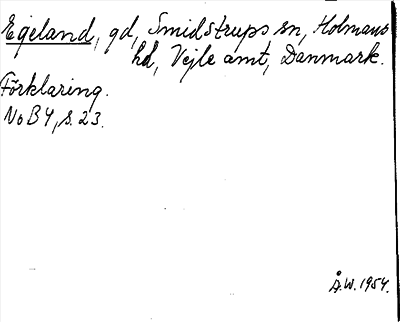 Egeland, gd, Smidstrups sn, Holmans
hd, Vejle amt, Danmark.
Förklaring.
NoB 4, s. 23.
Å.W. 1954.